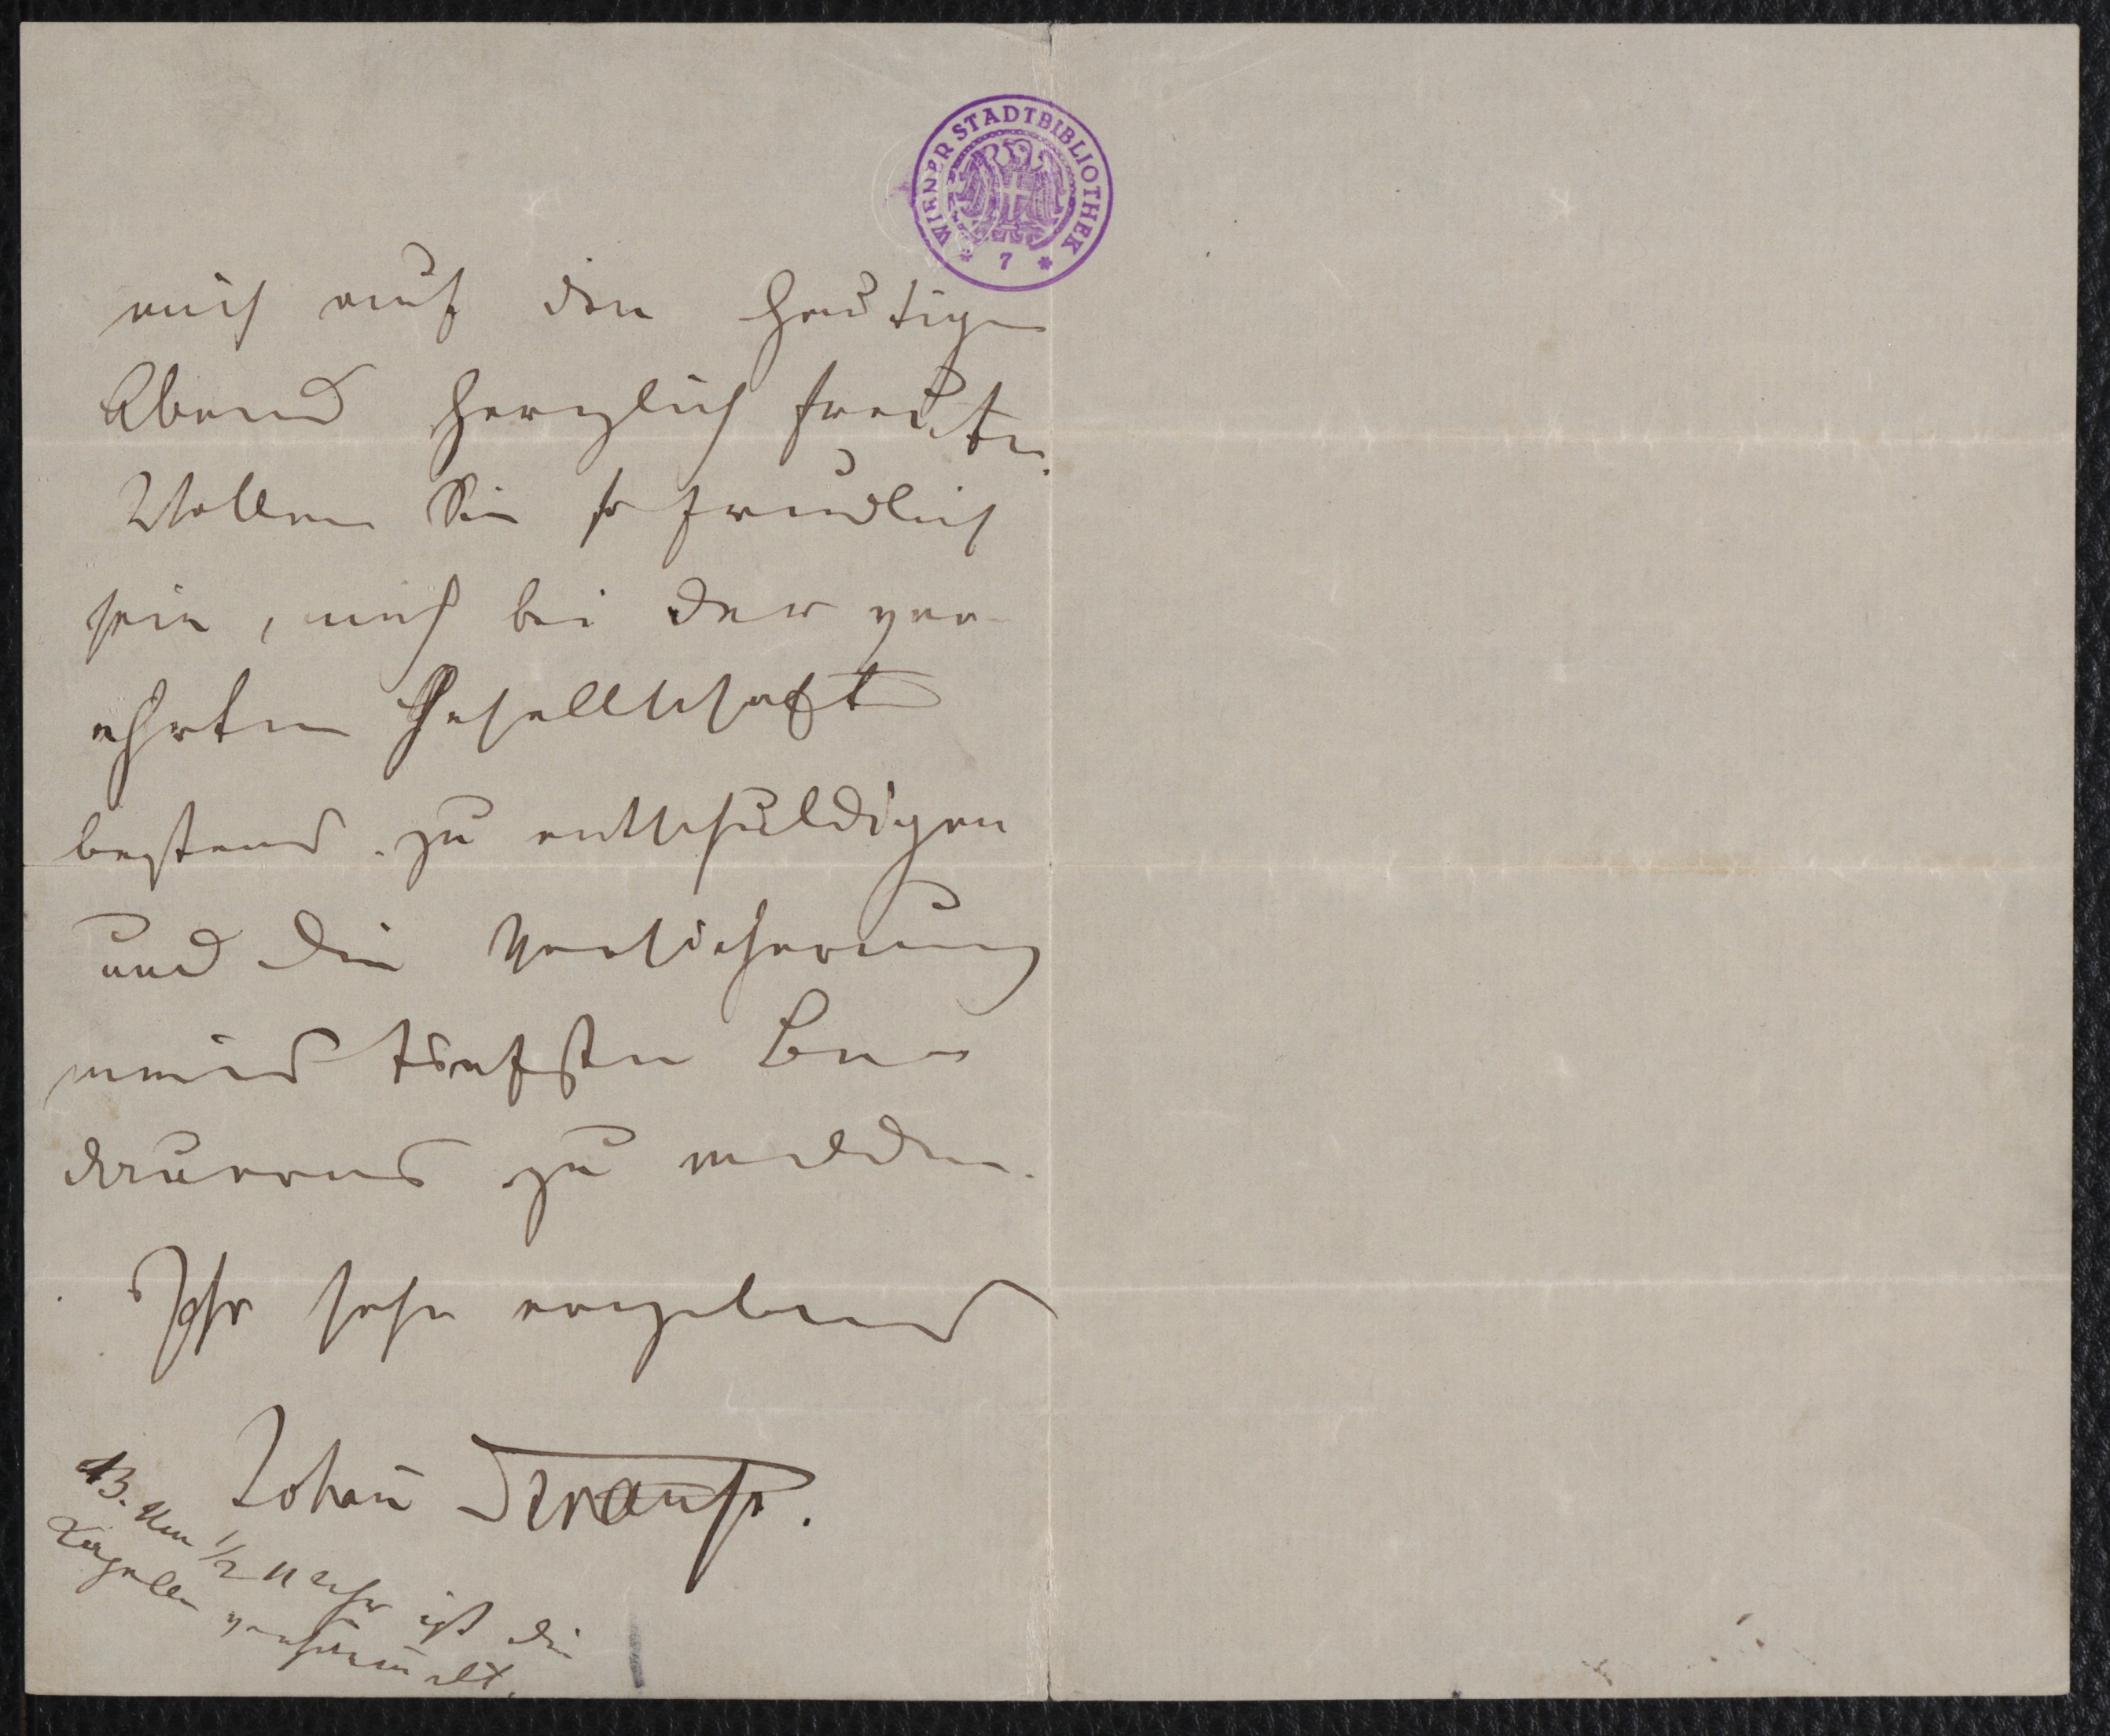 WIENER STADTBIBLIOTHEK
* 7 *
mich auf den heutigen
Abend herzlich freute.
Wollen Sie so freundlich
sein, mich bei der ver-
ehrten Gesellschaft
bestens zu entschuldigen
und die Versicherung
meines tiefsten Be-
dauerns zu melden.
Ihr sehr ergebener
Johann Strauss.
NB. Um 1/2 11 Uhr ist die
Kapelle versammelt.